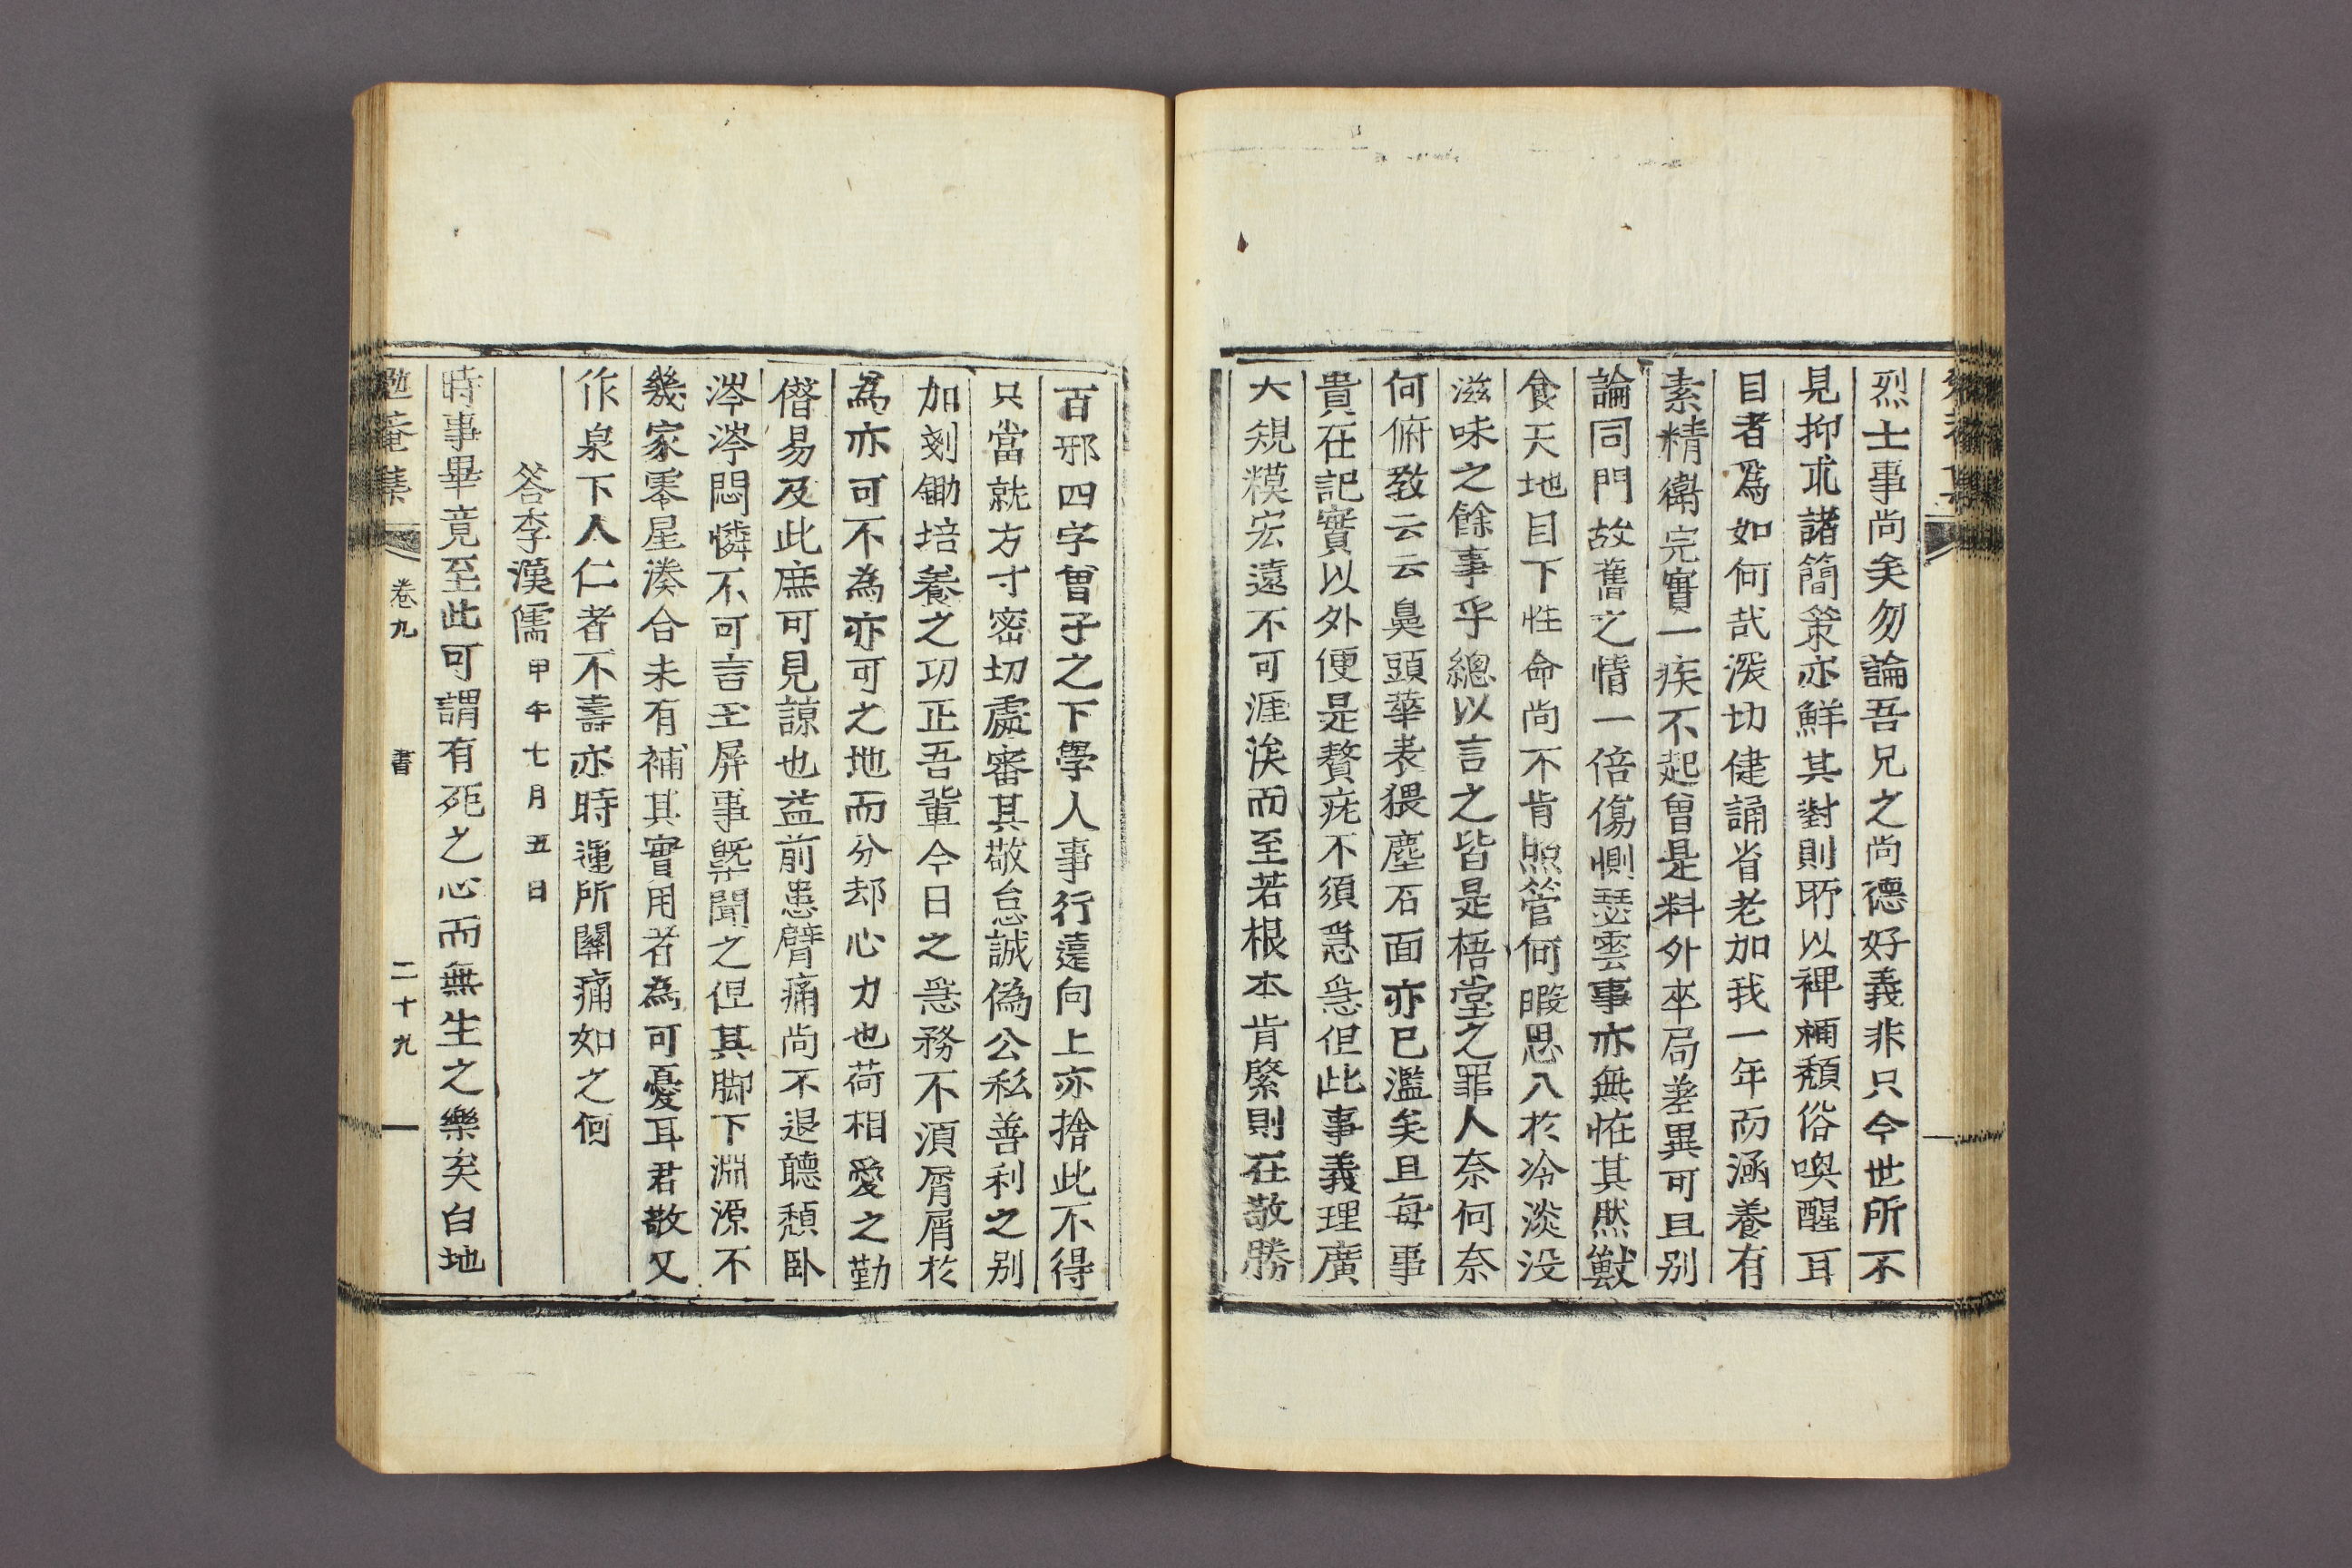 烈士事尚矣勿論吾兄之尚德好義非只今世所不
見抑求諸簡策亦鮮其對則所以裨補頹俗喚醒耳
目者爲如何哉深切健誦省老加我一年而涵養有
素精衛完實一疾不起曾是料外卒局差異可且别
論同門故舊之情一倍傷惻瑟雲事亦無恠其然獸
食天地目下性命尚不肯照管何暇思入於冷淡没
滋味之餘事乎總以言之皆是梧堂之罪人奈何奈
何俯教云云鼻頭華表猥塵石面亦已濫矣且每事
貴在記實以外便是贅疣不須急急但此事義理廣
大規模宏遠不可涯涘而至若根本肯綮則在敬勝
百邪四字曾子之下學人事行遠向上亦捨此不得
只當就方寸密切處審其敬怠誠僞公私善利之别
加剗鋤培養之功正吾輩今日之急務不須屑屑於
爲亦可不爲亦可之地而分却心力也荷相愛之勤
僭易及此庶可見諒也益前患臂痛尚不退聽頹卧
涔涔悶憐不可言玉屏事槩聞之但其脚下淵源不
幾家零星湊合未有補其實用者爲可憂耳君敬又
作泉下人仁者不壽亦時運所關痛如之何
答李漢儒 甲午七月五日
時事畢竟至此可謂有死之心而無生之樂矣白地
勉菴集 卷九 書 二十九